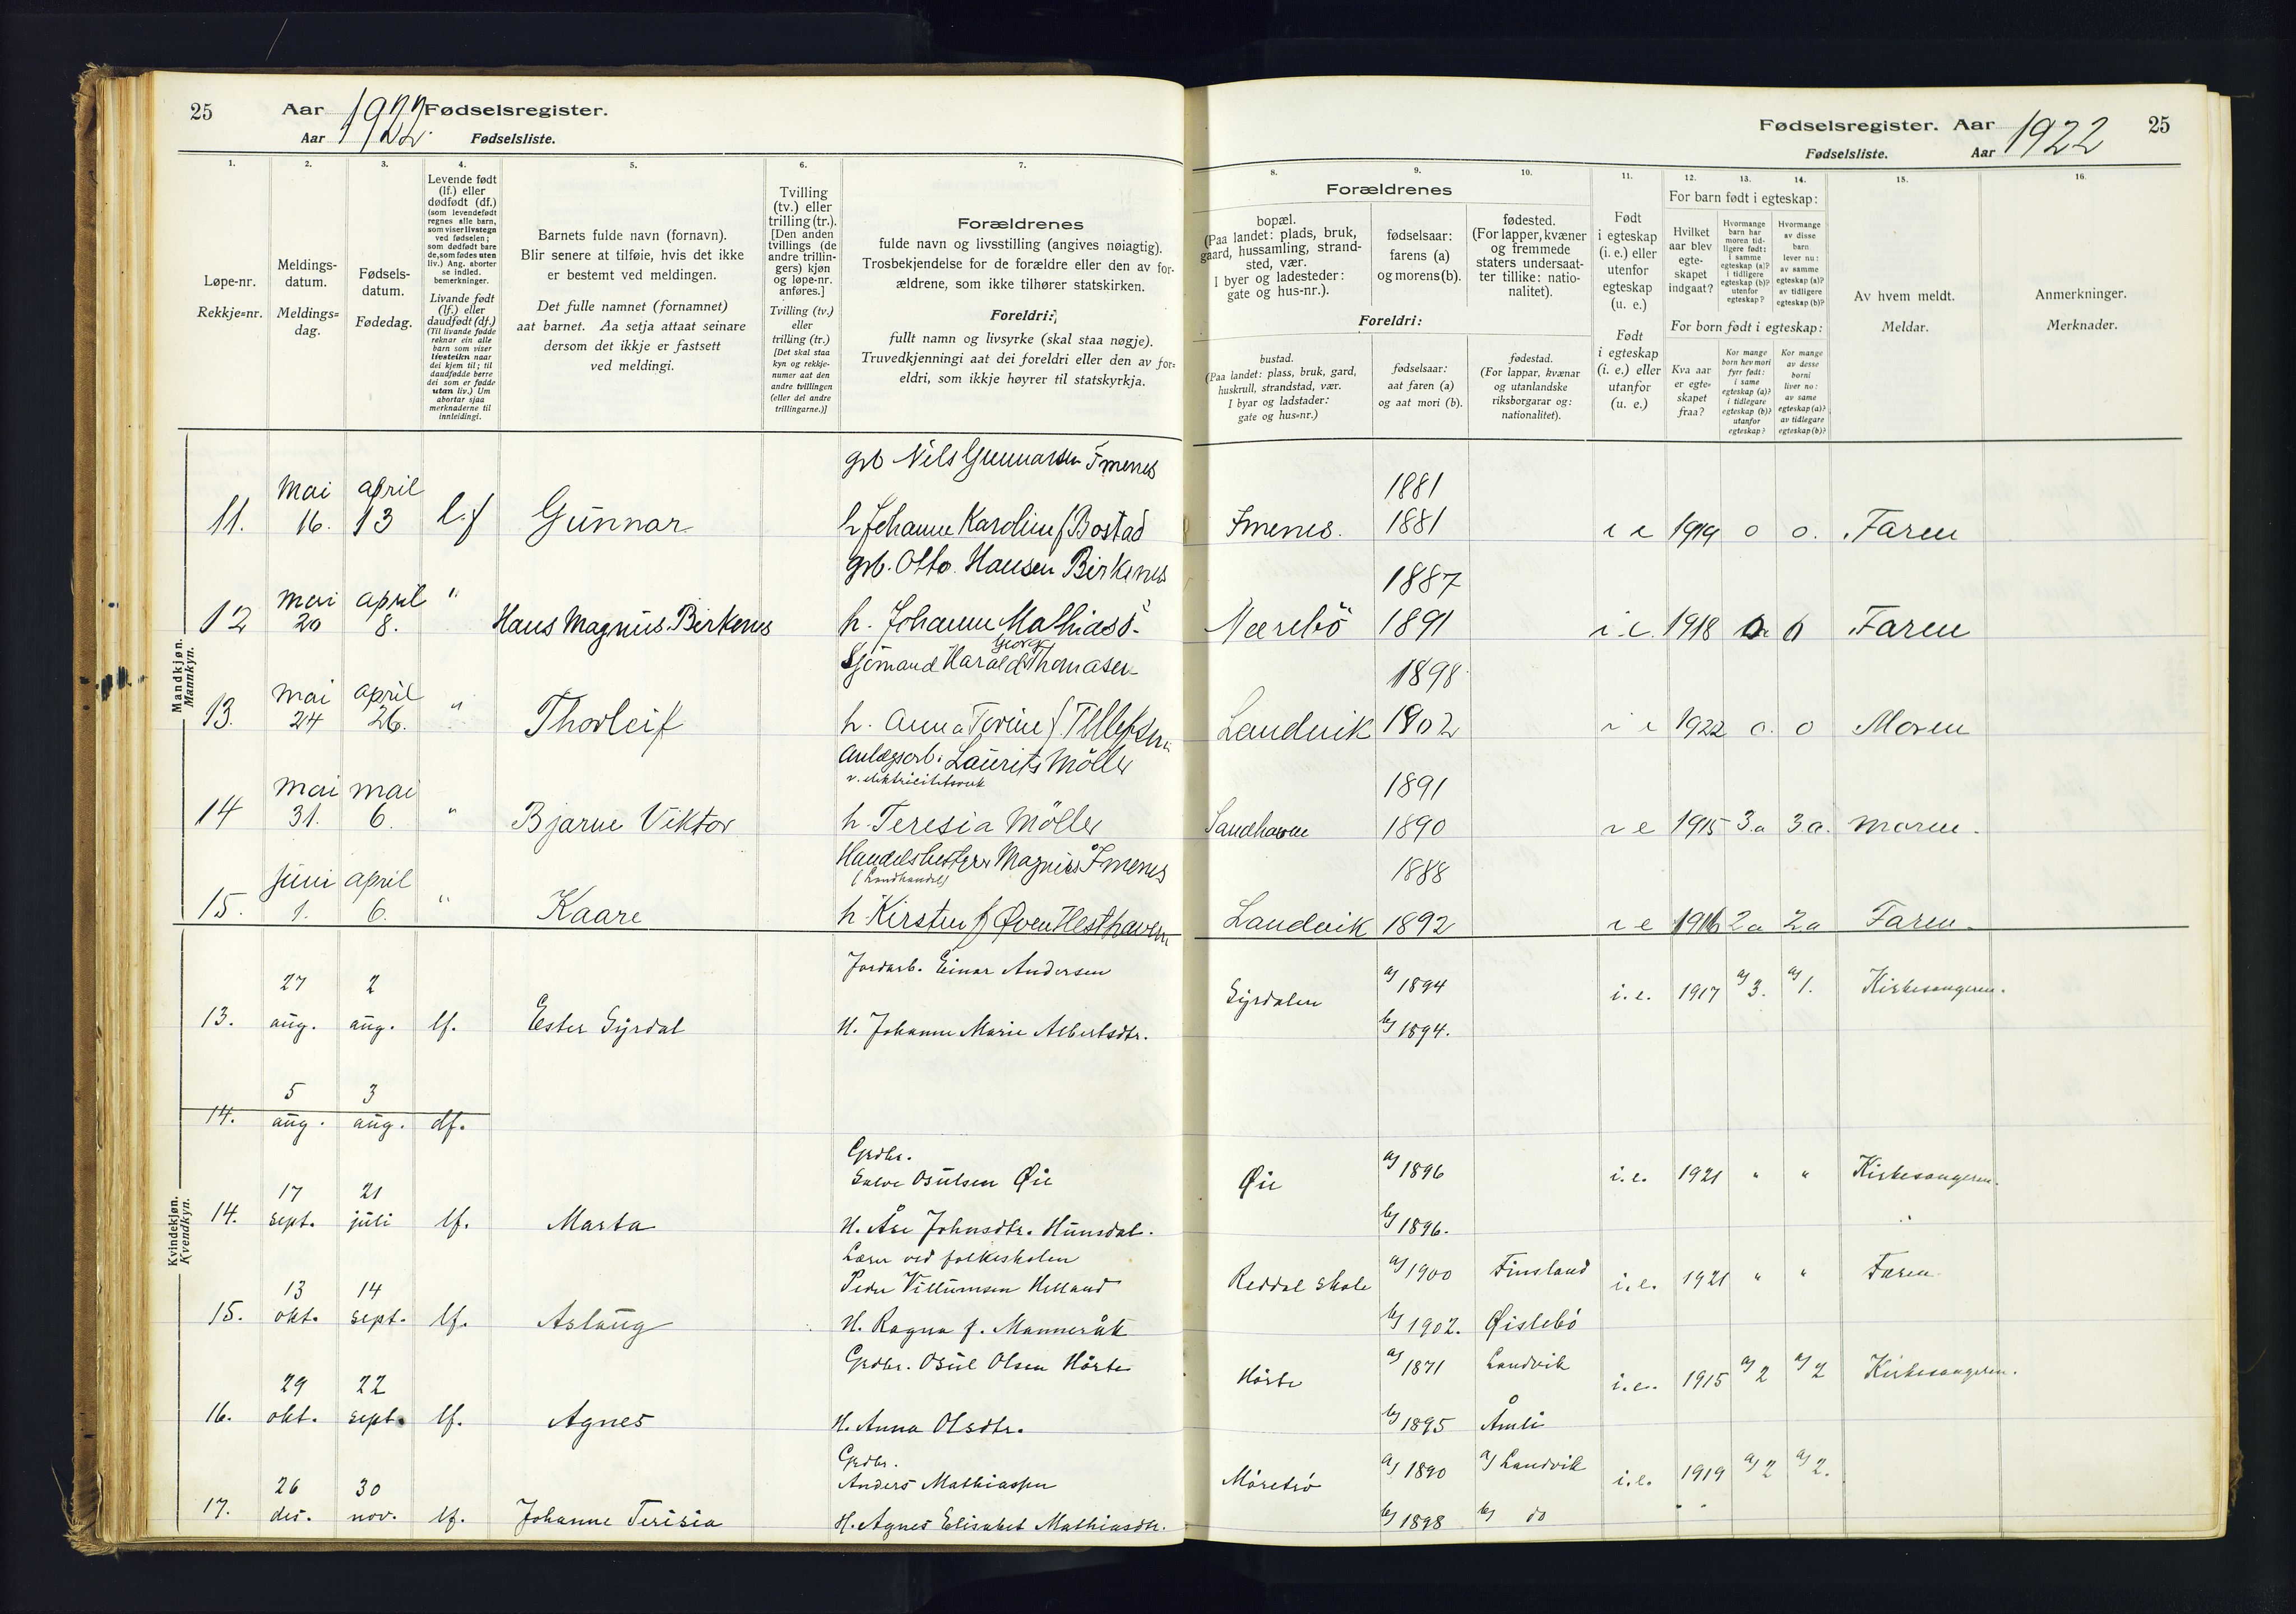 25 Aar 1922 Fødselsregister.
Aar Fødselsliste.
Fødselsregister. Aar 1922 25
Fødselsliste. Aar
1. 2. 3. 4. 5. 6. 7.
Løpe-nr.
Rekkje=nr.
Meldings-
datum.
Meldings=
dag.
Fødsels-
datum.
Fødedag.
Levende født
(lf.) eller
dødfødt (df.)
(som levendefødt
regnes alle barn,
som viser livstegn
ved fødselen;
som dødfødt bare
de, som fødes uten
liv.) Ang. aborter
se indled.
bemerkninger.
Livande født
(lf.) eller
daudfødt (df.)
(Til livande fødde
reknar ein alle
barn som viser
livsteikn naar
dei kjem til; til
daudfødde berre
dei som er fødde
utan liv.) Um
abortar sjaa
merknaderne til
innleidingi.
Barnets fulde navn (fornavn).
Blir senere at tilføie, hvis det ikke
er bestemt ved meldingen.
Det fulle namnet (fornamnet)
aat barnet. Aa setja attaat seinare
dersom det ikkje er fastsett
ved meldingi.
Tvilling
(tv.) eller
trilling (tr.).
[Den anden
tvillings (de
andre trillin-
gers) kjøn
og løpe-nr.
anføres.]
Tvilling (tv.)
eller
trilling (tr.)
[Det skal staa
kyn og rekkje-
numer aat den
andre tvillingen
(eller dei andre
trillingarne.)]
Forældrenes
fulde navn og livsstilling (angives nøiagtig).
Trosbekjendelse for de forældre eller den av for-
ældrene, som ikke tilhører statskirken.
Foreldri:
fullt namn og livsyrke (skal staa nøgje).
Truvedkjenningi aat dei foreldri eller den av for=
eldri, som ikkje høyrer til statskyrkja.
8. 9. 10. 11. 12. 13. 14. 15. 16.
Forældrenes
bopæl.
(Paa landet: plads, bruk,
gaard, hussamling, strand-
sted, vær.
I byer og ladesteder:
gate og hus-nr.).
fødselsaar:
farens (a)
og morens (b).
fødested.
(For lapper, kvæner
og fremmede
staters undersaat-
ter tillike: natio-
nalitet).
Foreldri:
bustad.
(Paa landet: plass, bruk, gard,
huskrull, strandstad, vær.
I byar og ladstader:
gate og hus=nr.)
fødselsaar:
aat faren (a)
og aat mori (b).
fødestad.
(For lappar, kvænar
og utanlandske
riksborgarar og:
nationalitet).
Født
i egteskap
(i. e.) eller
utenfor
egteskap
(u. e.)
Født
i egteskap
(i. e.) eller
utanfor
(u. e.)
For barn født i egteskap:
Hvilket
aar blev
egte-
skapet
indgaat?
Hvormange
barn har
moren tid-
ligere født:
i samme
egteskap (a)?
i tidligere
egteskap (b)?
utenfor
egteskap?
Hvormange
av disse
barn
lever nu:
av samme
egteskap (a)?
av tidligere
egteskap (b)?
For born født i egteskap:
Kva aar
er egte=
skapet
fraa?
Kor mange
born hev mori
fyrr født:
i same
egteskap (a)?
i tidlegare
egteskap (b)?
utanfor
egteskap?
Kor mange
av desse
borni
liver no:
av same
egteskap (a)?
av tidlegare
egteskap (b)?
Av hvem meldt.
Meldar.
Anmerkninger.
Merknader.
Mandkjøn.
Mannkyn.
grb Nils Gunnarsen Imenes
11. Mai 16. april 13 l.f Gunnar h Johanne Karoline f Bostad Imenes. 1881 1881 i e 1919 0 0. Faren
grb. Otto Hansen Birkenes
12 mai 20 april 8. " Hans Magnus Birkenes h. Johanne Mathiasd. Nærebö 1887 1891 i. e. 1918 0 Faren
Georg
Sjömand Harald Thomasen
13. mai 24 april 26. " Thorleif h. Anna Torine f. Tellefsen Landvik 1898 1902 i e 1922 0. 0 Moren
Anlægsarb. Laurits Möller
v. elektricitetsverk
14 mai 31. mai 6. " Bjarne Viktor h. Teresia Möller Sandhaven 1891 1890 i e 1915 3.a 3a. moren.
Handelsbestyrer Magnus Imenes
(Landhandel)
15. juni 1. april 6. " Kaare h Kirsten f Øven Hesthaven Landvik 1888 1892 i e 1916 2a 2a Faren.
Kvindekjøn.
Kvendkyn.
Jordarb. Einar Andersen
13. 27 aug. 2 aug. lf. Ester Syrdal H. Johanne Marie Albertsdtr. Syrdalen a) 1894 b) 1894. i. e. 1917 a) 3. a) 1. Kirkesangeren.
14. 5 aug. 3 aug. df.
Grdbr.
Salve Osulsen Øie
14. 17 sept. 21 juli lf. Marta H. Åse Johnsdtr. Hunsdal. Øie a) 1896 b) 1896. i. e. 1921 " " Kirkesangeren.
Lærer ved folkeskolen
Peder Villumsen Helland
15. 13 okt. 14 sept. lf. Aslaug H. Ragna f. Manneråk Reddal skole a) 1900 b) 1902. Finsland Øislebö i. e. 1921 " " Faren.
Grdbr. Osul Olsen Hörte
16. 29 okt. 22 sept. lf. Agnes H. Anna Olsdtr. Hörte a) 1871 b) 1895 Landvik Åmli i. e. 1915 a) 2 a) 2 Kirkesangeren.
Grdbr.
Anders Mathiassen
17. 26 des. 30 nov. lf. Johanne Terisia H. Agnes Elisabet Mathiasdtr. a) 1890 b) 1898 a) Landvik b) do i. e. 1919 a) 2 a) 2.